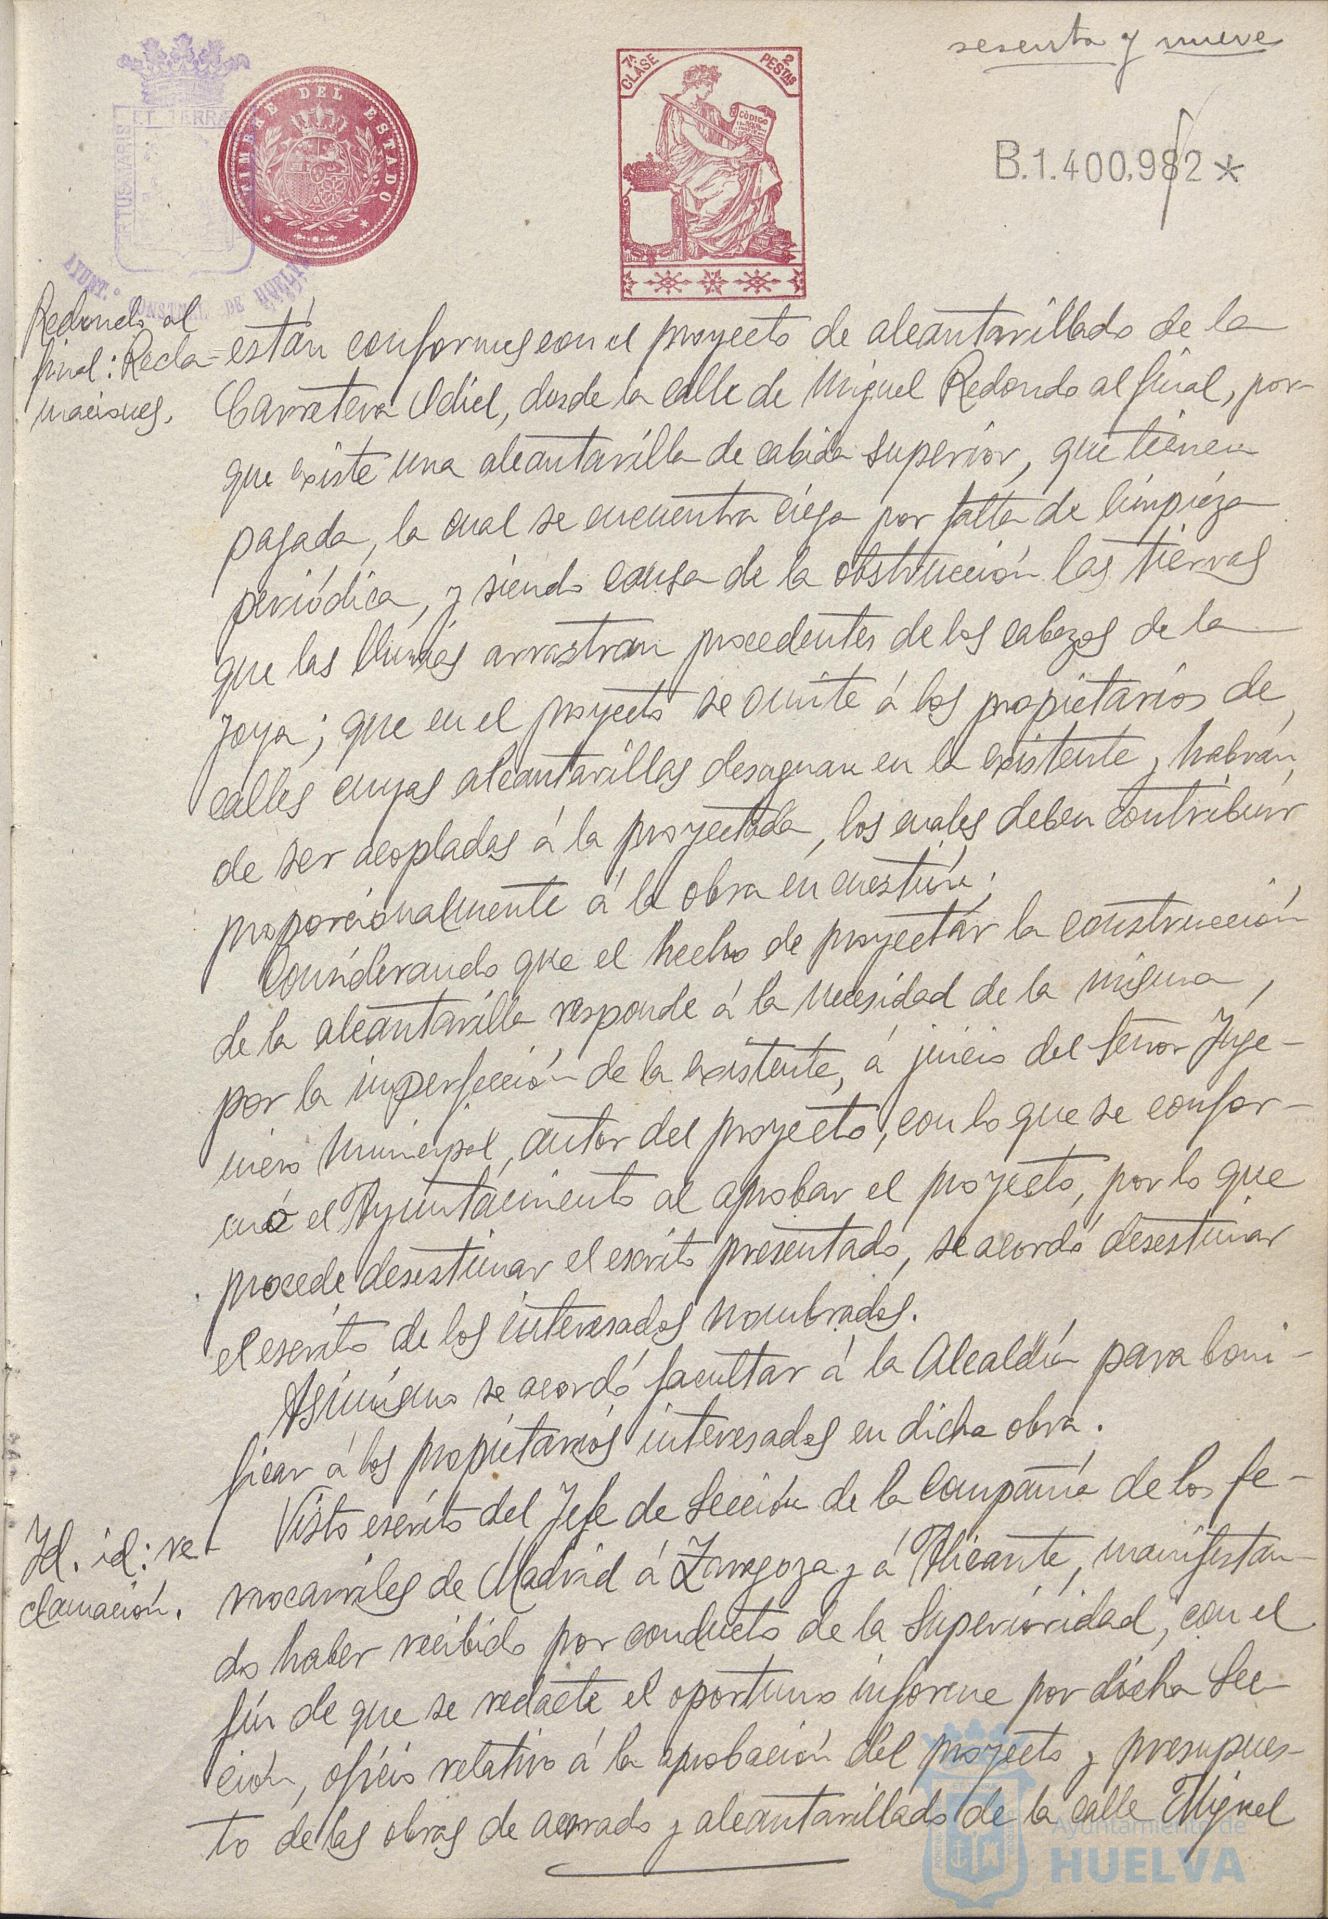 sesenta y nueve
7ª CLASE
2 PESTAS
CÓDIGO
TIMBRE DEL ESTADO
ET TERRÆ
PORTUS MARIS
AYUNT.º CONSTNAL DE HUELVA
B.1.400,982 *
Redondo al
final: Recla-
maciones.
están conformes con el proyecto de alcantarillado de la
Carretera Odiel, desde la calle de Miguel Redondo al final, por-
que existe una alcantarilla de cabida superior, que tienen
pagada, la cual se encuentra ciega por falta de limpieza
periódica, y siendo causa de la obstrucción las tierras
que las lluvias arrastran procedentes de los cabezos de la
Joya; que en el proyecto se omite á los propietarios de
calles cuyas alcantarillas desaguan en la existente y habrán,
de ser acopladas á la proyectada, los cuales deben contribuir
proporcionalmente á la obra en cuestión;
Considerando que el hecho de proyectar la construcción
de la alcantarilla responde á la necesidad de la misma,
por la imperfección de la existente, á juicio del Señor Inge-
niero Municipal, autor del proyecto, con lo que se confor-
mó el Ayuntamiento al aprobar el proyecto, por lo que
procede desestimar el escrito presentado, se acordó desestimar
el escrito de los interesados nombrados.
Asimismo se acordó facultar á la Alcaldía para boni-
ficar á los propietarios interesados en dicha obra.
Id. id: re-
clamación.
Visto escrito del Jefe de Sección de la Compañía de los fe-
rrocarriles de Madrid á Zaragoza y á Alicante, manifestan-
do haber recibido por conducto de la Superioridad, con el
fin de que se redacte el oportuno informe por dicha Sec-
ción, oficio relativo á la aprobación del proyecto y presupues-
to de las obras de acerado y alcantarillado de la calle Miguel
Ayuntamiento de
HUELVA